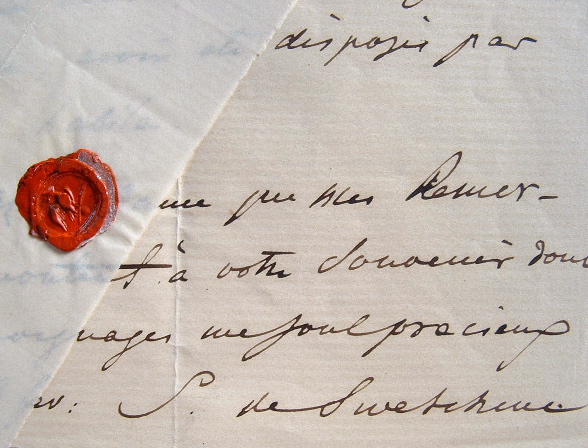 disposés par
que mes Remer-
à votre Souvenir dont
nages me sont precieux
S. de Swetchine